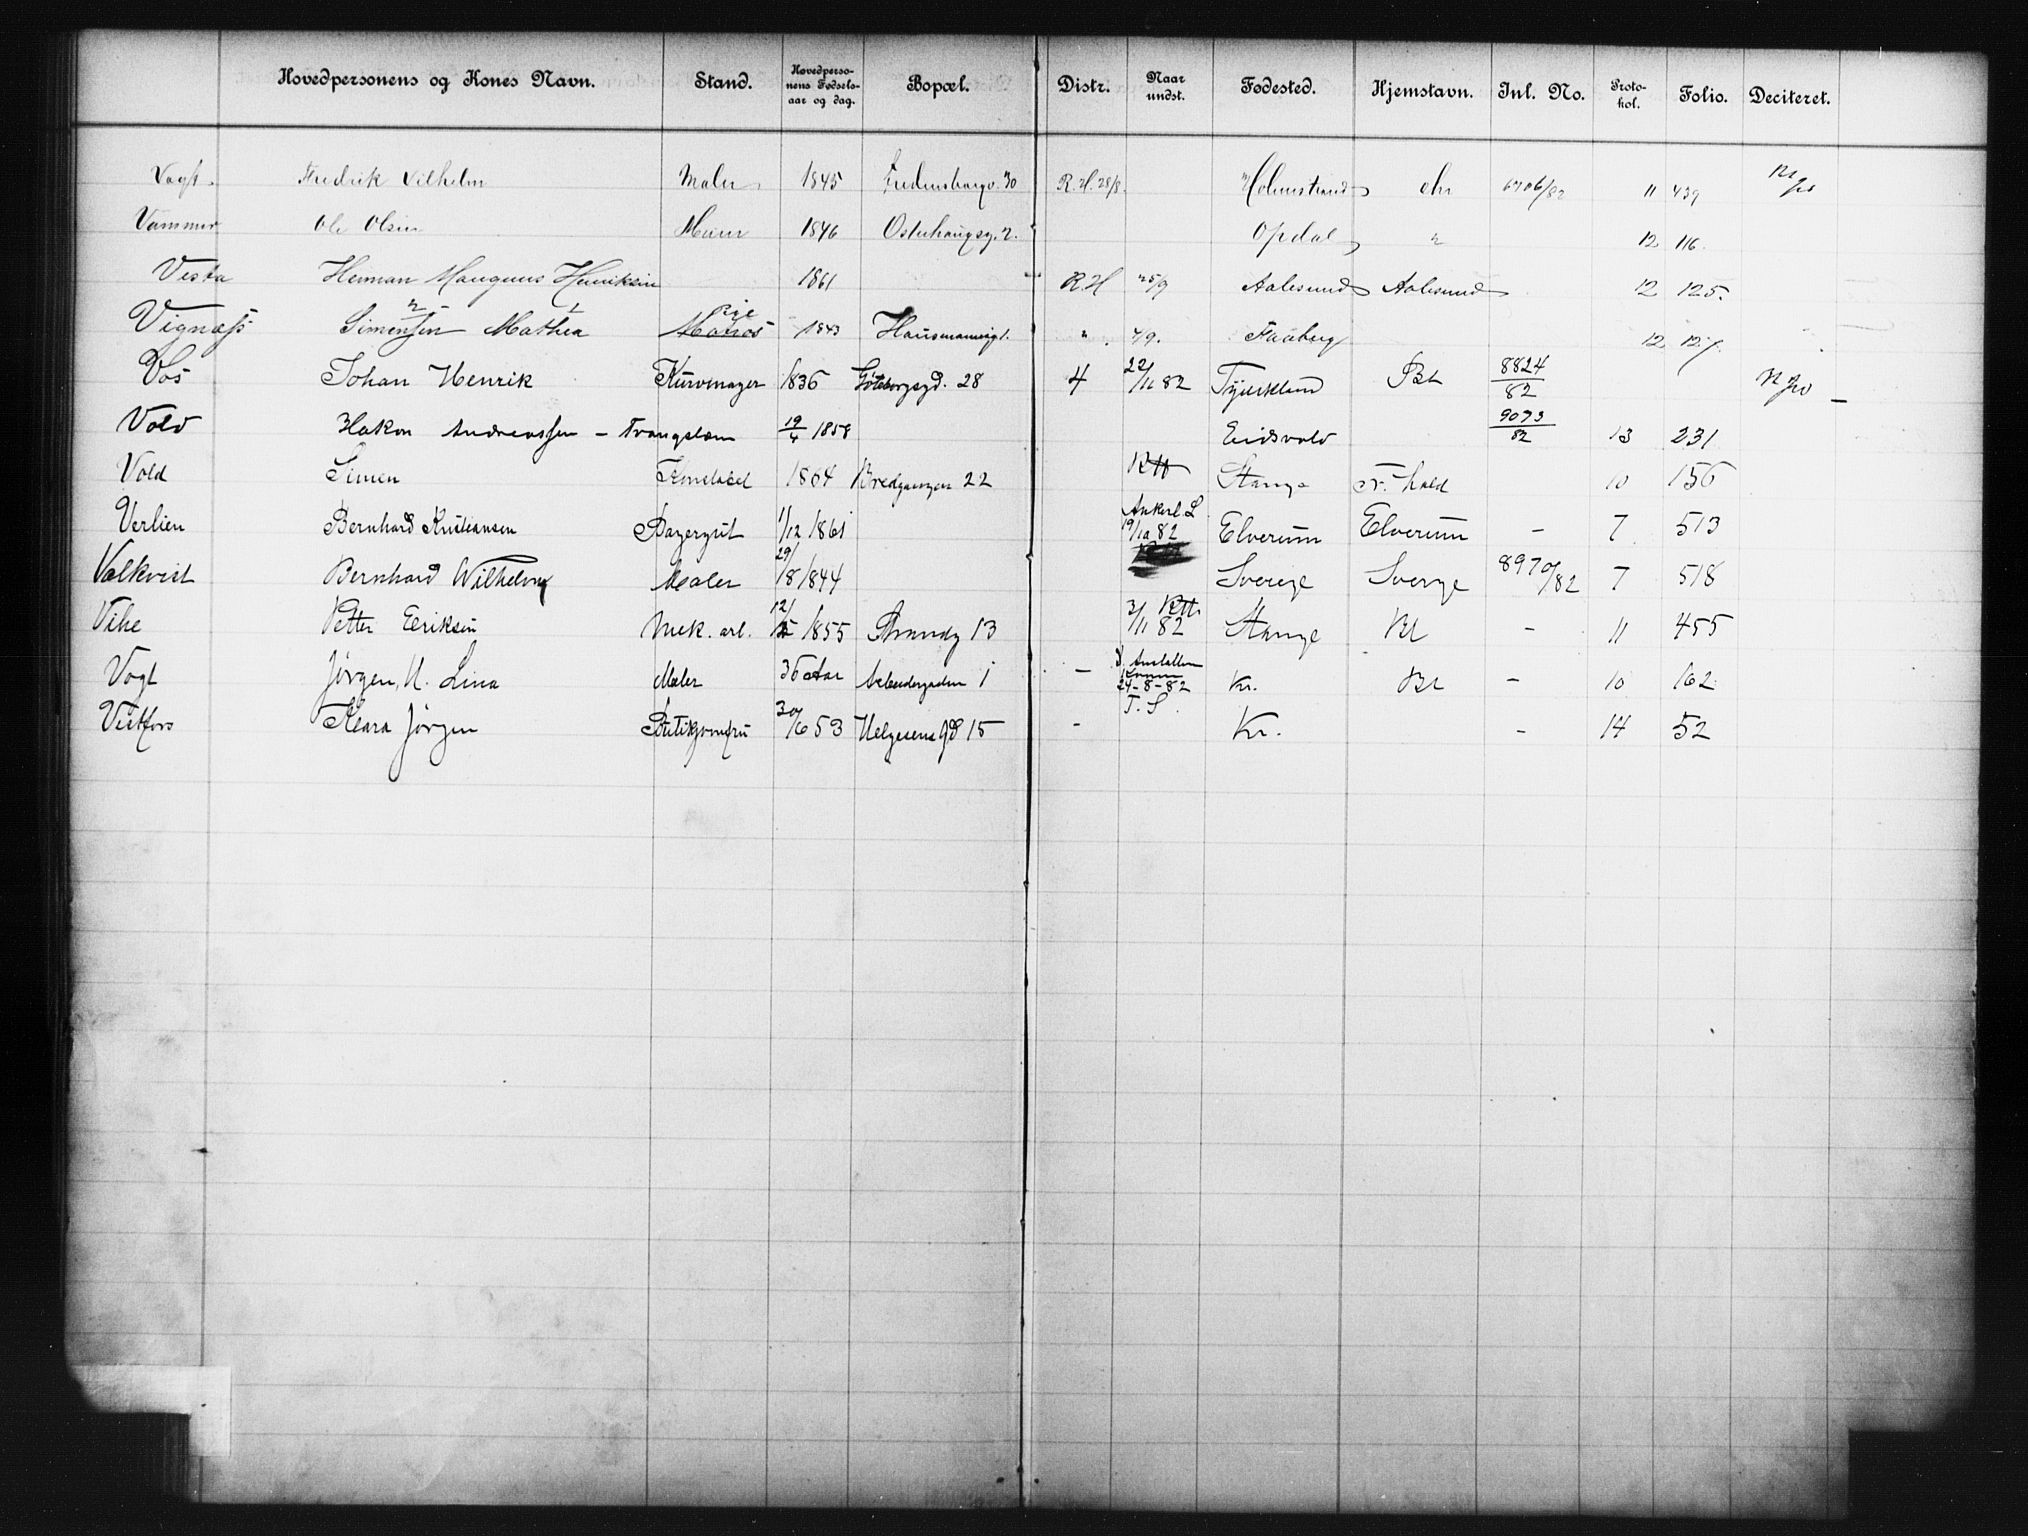 Hovedpersonens og Kones Navn. Stand. Hovedpersonens Fødselsaar og dag. Bopæl. Distr. Naar undst. Fødested. Hjemstavn. Inl. No. Protokol. Folio. Deciteret.
Vogt Fredrik Vilhelm Maler 1845 Fredensborgv. 30 R.H. 28/8 Holmestrand chr 6706/82 11 439
Vammer Ole Olsen 1846 Osterhausg. 2. Opdal " 12 116.
Vesta Herman Mangnus Henriksen 1861 R.H 25/9 Aalesund Aalesund 12 125.
Vignæss Simensen Mathea Pige 1843 Hausmannsgt. " 4/9. Faaberg 12 127.
Vos Johan Henrik Kurvmager 1836 Göteborgsgd. 28 4 22/11 82 Bl 8824/82
Vold Hakon Andreassen – Tvangslem 19/4 1858 Eidsvold 9073/82 13 231
Vold Simen 1864 Bredgangen 22 Stange Fr.hald 10 156
Verlien Bernhard Kristiansen Bagergut 1/12 1861 Ankerl. L. 19/10 82 Elverum Elverum – 7 513
Valkvist Bernhard Wilhelm Maler 29/8 1844 Sverige Sverge 8970/82 7 518
Vihe Petter Eriksen Mek. arb. 12/5 1855 Strandg 13 3/11 82 Stange Bl – 11 455
Vogt Jörgen, N. Lina Maler 36 Aar Arbeidergaden 1 – 24-8-82 Kr. Bl – 10 162
Vestfors Klara Jörgen Butikjomfru 30/6 53 Helgesens gd 15 – T. S. Kr. – 14 52